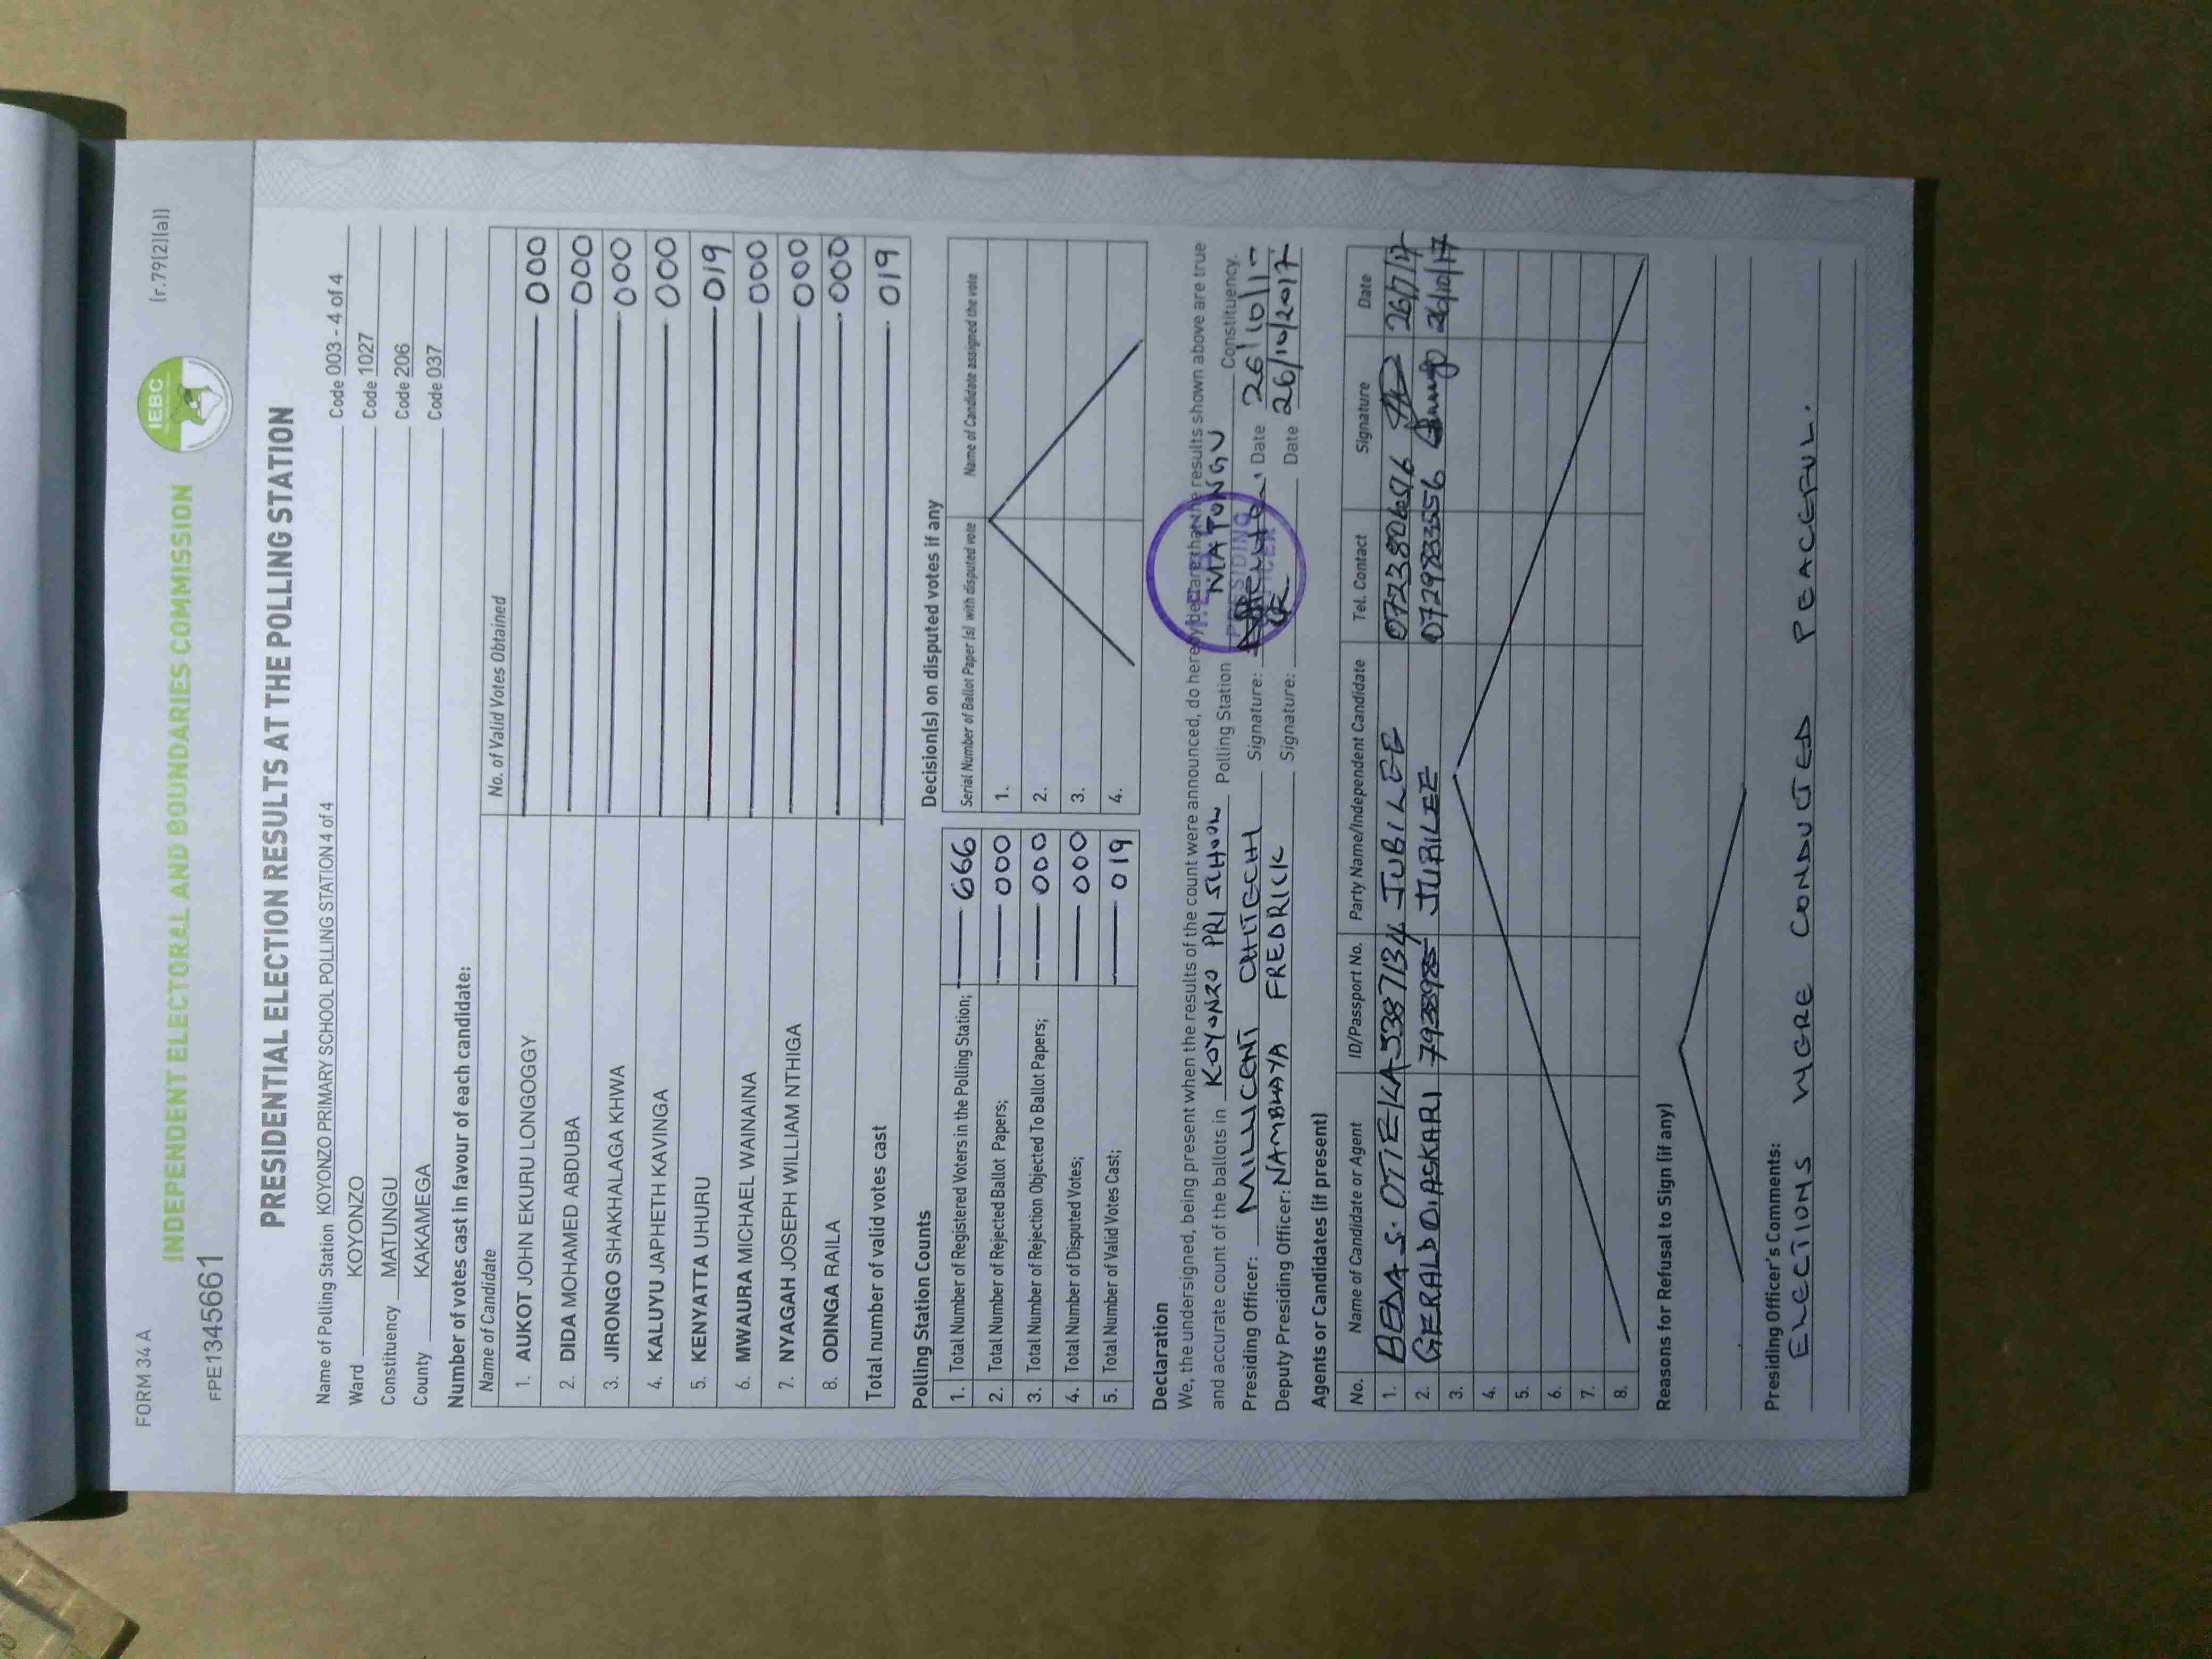 FORM 34 A
(r.79(2)(a))
IEBC
INDEPENDENT ELECTORAL AND BOUNDARIES COMMISSION
FPE1345661
PRESIDENTIAL ELECTION RESULTS AT THE POLLING STATION
Name of Polling Station KOYONZO PRIMARY SCHOOL POLLING STATION 4 of 4 Code 003 - 4 of 4
Ward KOYONZO Code 1027
Constituency MATUNGU Code 206
County KAKAMEGA Code 037
Number of votes cast in favour of each candidate:
Name of Candidate No. of Valid Votes Obtained
1. AUKOT JOHN EKURU LONGOGGY 000
2. DIDA MOHAMED ABDUBA 000
3. JIRONGO SHAKHALAGA KHWA 000
4. KALUYU JAPHETH KAVINGA 000
5. KENYATTA UHURU 019
6. MWAURA MICHAEL WAINAINA 000
7. NYAGAH JOSEPH WILLIAM NTHIGA 000
8. ODINGA RAILA 000
Total number of valid votes cast 019
Polling Station Counts
1. Total Number of Registered Voters in the Polling Station; 666
2. Total Number of Rejected Ballot Papers; 000
3. Total Number of Rejection Objected To Ballot Papers; 000
4. Total Number of Disputed Votes; 000
5. Total Number of Valid Votes Cast; 019
Decision(s) on disputed votes if any
Serial Number of Ballot Paper (s) with disputed vote Name of Candidate assigned the vote
1.
2.
3.
4.
Declaration
We, the undersigned, being present when the results of the count were announced, do hereby declare that the results shown above are true
and accurate count of the ballots in KOYONZO PRI SCHOOL Polling Station MATUNGU Constituency.
Presiding Officer: MILLICENT Signature: Date 26/10/17
Deputy Presiding Officer: NAMBWAYA FREDRICK Signature: Date 26/10/2017
PRESIDING
Agents or Candidates (if present)
No. Name of Candidate or Agent ID/Passport No. Party Name/Independent Candidate Tel. Contact Signature Date
1. BEDA S. JUBILEE 26/7/17
2. GERALD JUBILEE 26/10/17
3.
4.
5.
6.
7.
8.
Reasons for Refusal to Sign (if any)
Presiding Officer's Comments:
ELECTIONS WERE CONDUCTED PEACEFUL.